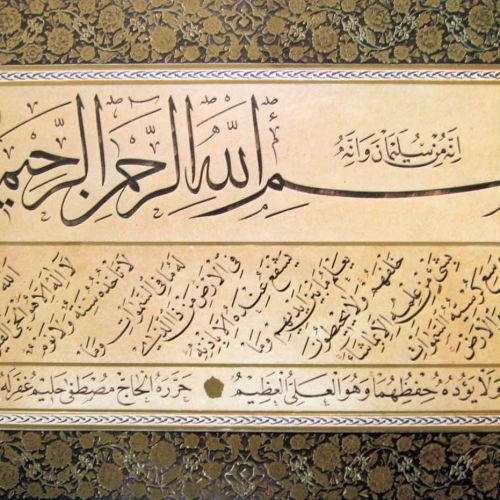 انه من سليمان وانه
سم الله الرحمن الرحيم
الله
لا اله الا هو الحي القيو
لا تأخذه سنة ولا نوم
له ما في السموات وما
في الارض من ذا الذي
يشفع عنده الا باذنه
يعلم ما بين ايديهم وما
خلفهم ولا يحيطون
بشيء من علمه الا بما شاء
وسع كرسيه السموات
والارض
ولا يؤده حفظهما وهو العلي العظيم حرره الحاج مصطفى حليم غفر له